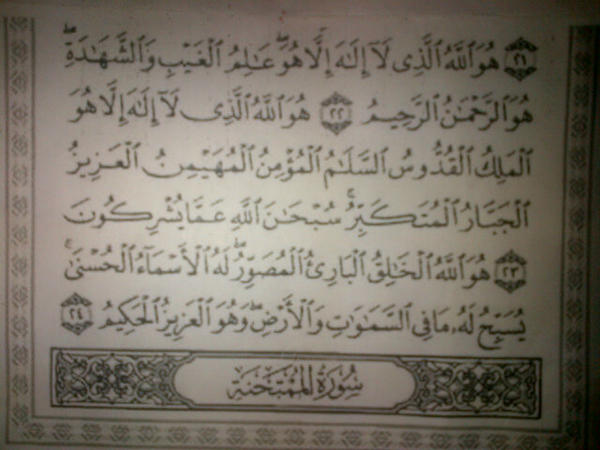 ٢١ هُوَ ٱللَّهُ ٱلَّذِى لَآ إِلَٰهَ إِلَّا هُوَ ۖ عَٰلِمُ ٱلْغَيْبِ وَٱلشَّهَٰدَةِ ۖ
هُوَ ٱلرَّحْمَٰنُ ٱلرَّحِيمُ ٢٢ هُوَ ٱللَّهُ ٱلَّذِى لَآ إِلَٰهَ إِلَّا هُوَ
ٱلْمَلِكُ ٱلْقُدُّوسُ ٱلسَّلَٰمُ ٱلْمُؤْمِنُ ٱلْمُهَيْمِنُ ٱلْعَزِيزُ
ٱلْجَبَّارُ ٱلْمُتَكَبِّرُ ۚ سُبْحَٰنَ ٱللَّهِ عَمَّا يُشْرِكُونَ
٢٣ هُوَ ٱللَّهُ ٱلْخَٰلِقُ ٱلْبَارِئُ ٱلْمُصَوِّرُ ۖ لَهُ ٱلْأَسْمَآءُ ٱلْحُسْنَىٰ ۚ
يُسَبِّحُ لَهُۥ مَا فِى ٱلسَّمَٰوَٰتِ وَٱلْأَرْضِ ۖ وَهُوَ ٱلْعَزِيزُ ٱلْحَكِيمُ ٢٤
سُورَةُ المُمْتَحَنَةِ